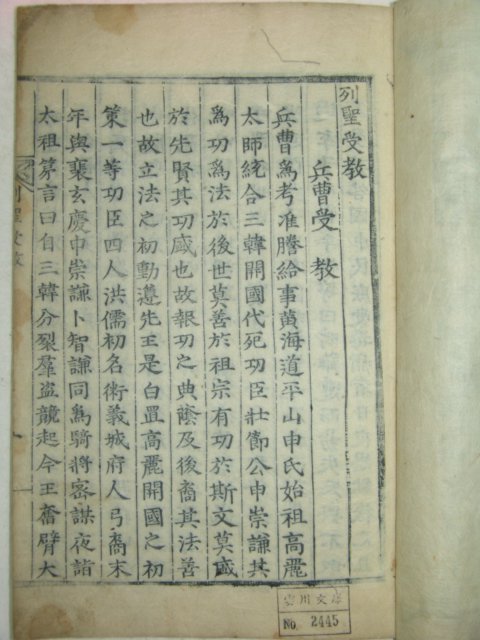 列聖受教
兵曹受教
兵曹爲考准謄給事黃海道平山申氏始祖高麗
太師統合三韓開國代死功臣壯節公申崇謙其
爲功爲法於後世莫善於祖宗有功於斯文莫盛
於先賢其功盛也故報功之典蔭及後裔其法善
也故立法之初動遵先王是白置高麗開國之初
策一等功臣四人洪儒初名術義城府人弓裔末
年與裵玄慶申崇謙卜智謙同爲騎將密謀夜詣
太祖第言曰自三韓分裂羣盜競起今王奮臂大
列聖受教
一
雲川文庫
No. 2445